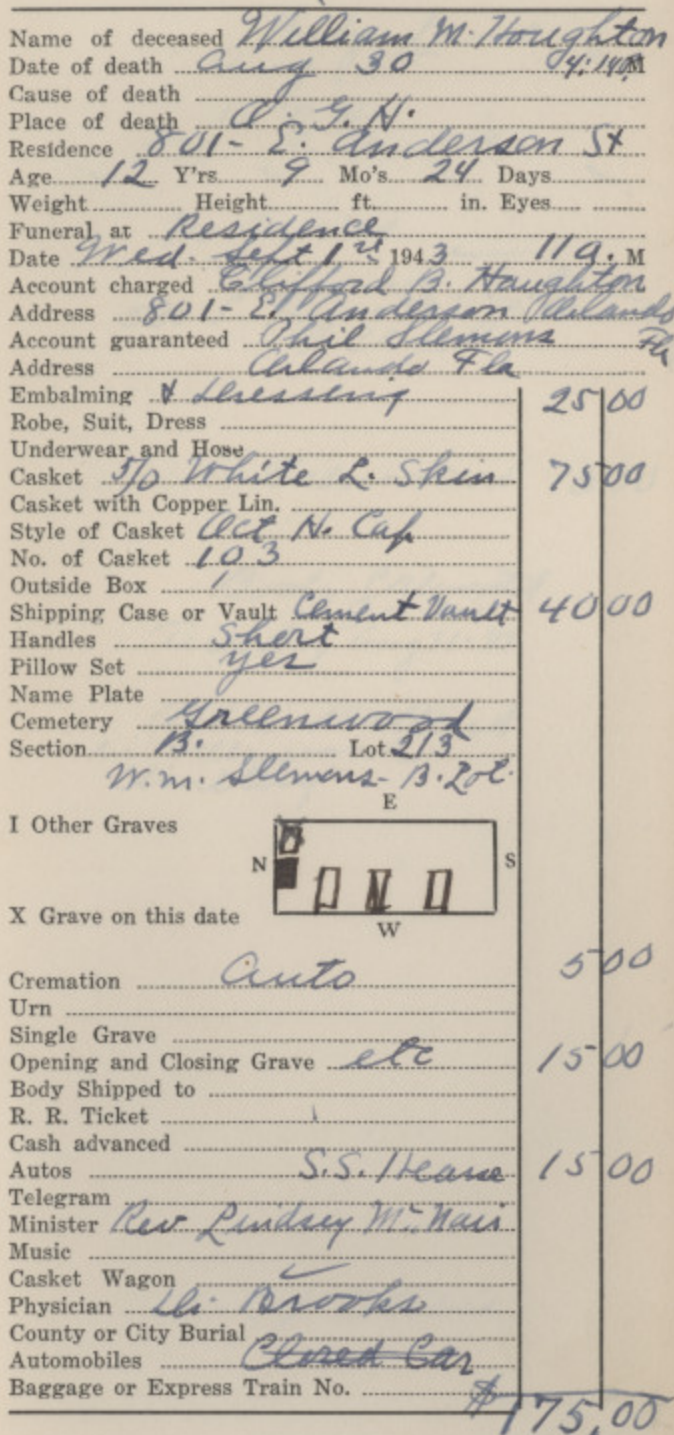 Name of deceased William M. Houghton
Date of death Aug 30 4:14 M
Cause of death
Place of death O. G. H.
Residence 801- E. Anderson St
Age 12 Y'rs 9 Mo's 24 Days
Weight Height ft. in. Eyes
Funeral at Residence
Date Wed. Sept 1st 1943 11 a. M
Account charged Clifford B. Houghton
Address 801- E. Anderson Orlando
Account guaranteed Phil Slemons Fla
Address Orlando Fla
Embalming & Dressing 25 00
Robe, Suit, Dress
Underwear and Hose
Casket 5/0 White L. Skin 75 00
Casket with Copper Lin.
Style of Casket Oct N. Cap
No. of Casket 103
Outside Box
Shipping Case or Vault Cement Vault 40 00
Handles Short
Pillow Set yes
Name Plate
Cemetery Greenwood
Section B. Lot 213
W.m. Slemons- B. Lot.
E
I Other Graves
N S
X Grave on this date
W
Cremation Auto 5 00
Urn
Single Grave
Opening and Closing Grave etc 15 00
Body Shipped to
R. R. Ticket
Cash advanced
Autos S.S. Hearse 15 00
Telegram
Minister Rev Lindsey Mc Nair
Music
Casket Wagon ✓
Physician Dr. Brooks
County or City Burial
Automobiles Closed Car
Baggage or Express Train No.
$175.00